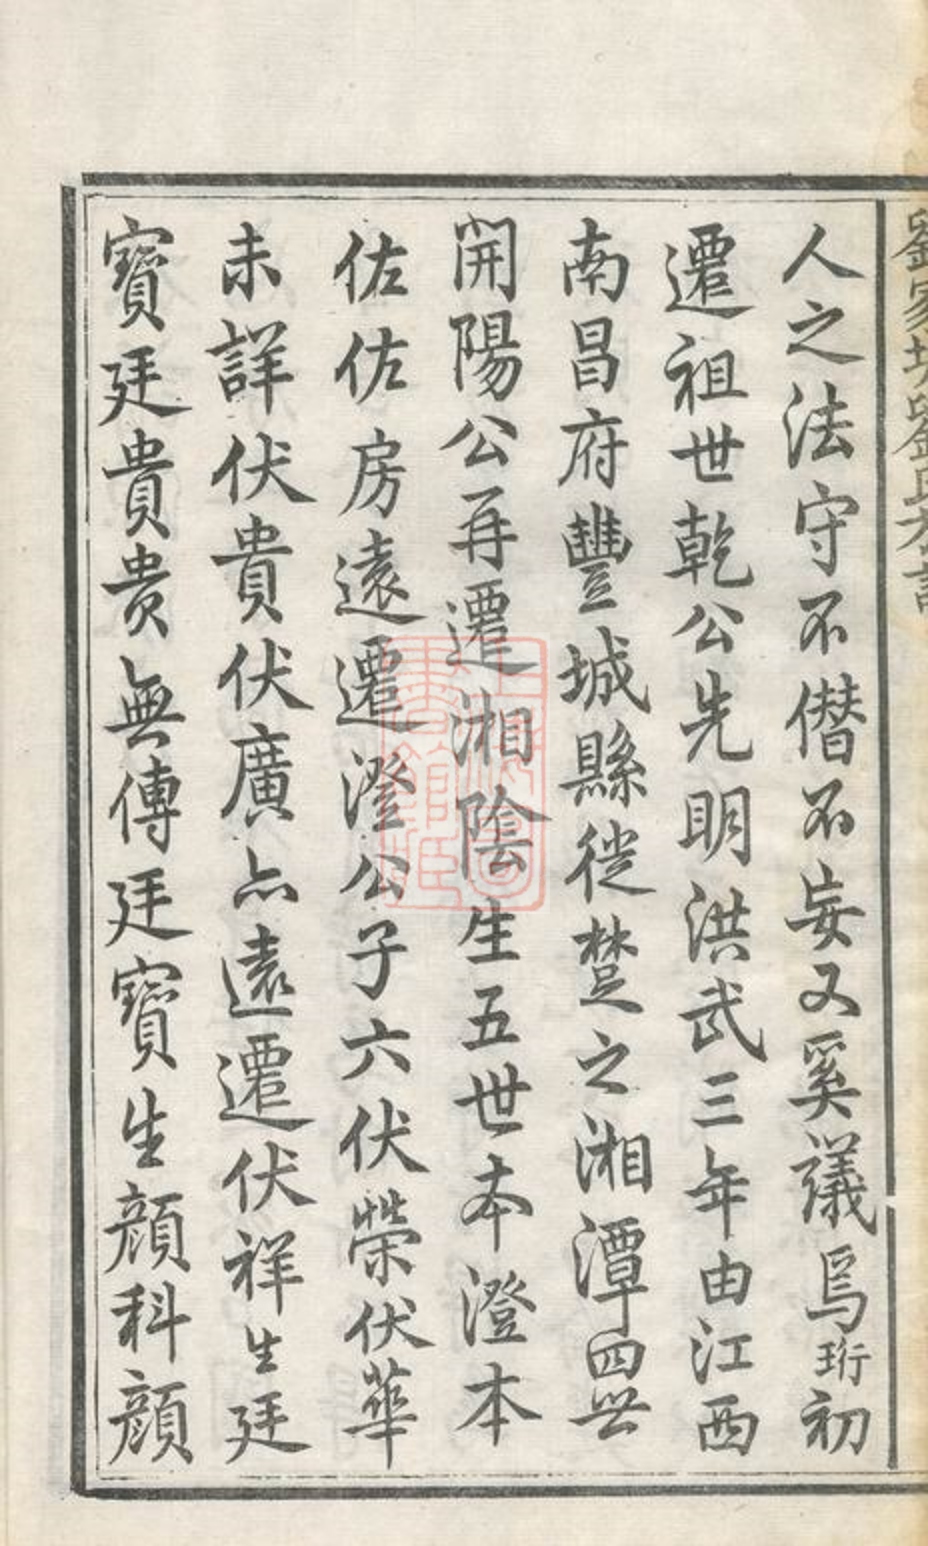 劉家坊劉氏
人之法守不僭不妄又奚議焉珩初
遷祖世乾公先明洪武三年由江西
南昌府豐城縣徙楚之湘潭四世
開陽公再遷湘陰生五世本澄本
佐佐房遠遷澄公子六伏榮伏華
未詳伏貴伏廣亦遠遷伏祥生廷
寶廷貴貴無傳廷寶生顔科顔